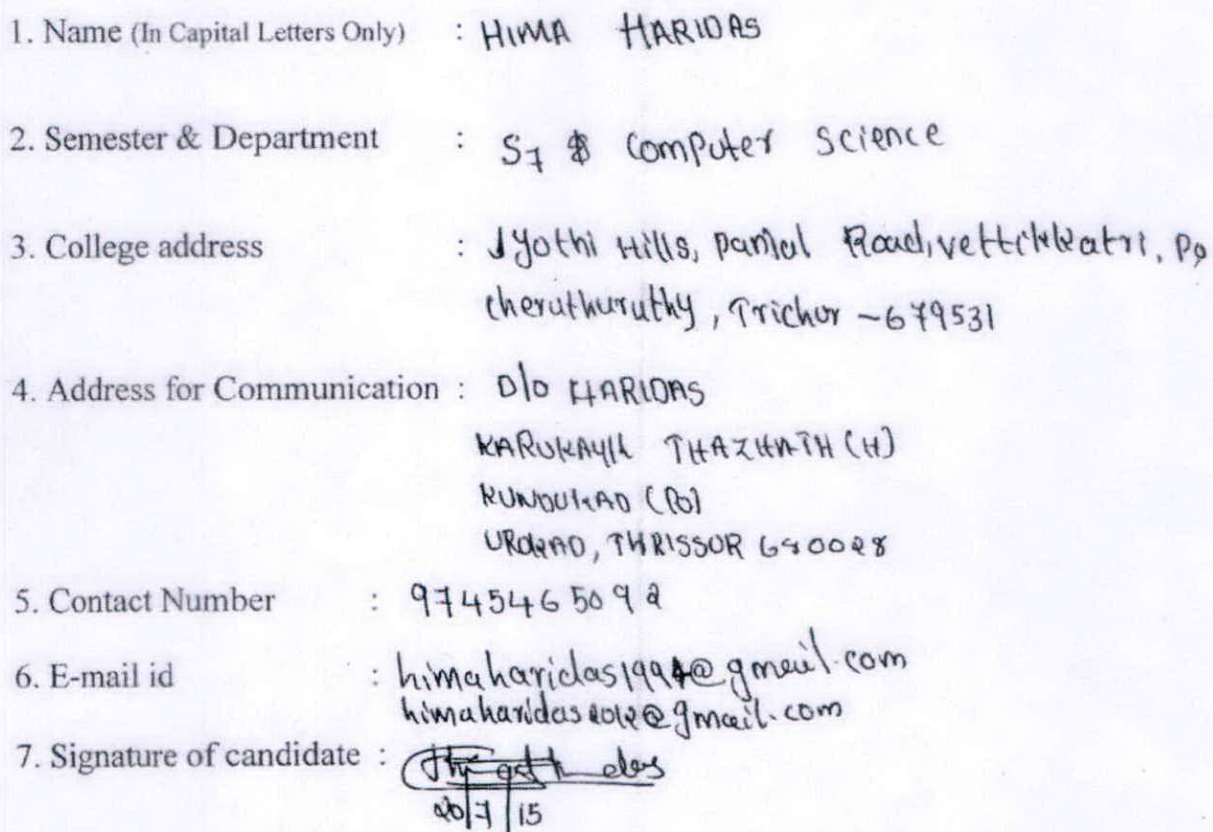 1. Name (In Capital Letters Only) : HIMA HARIDAS
2. Semester & Department : S7 & Computer Science
3. College address : Jyothi Hills, Panjal Road, vettikkatri, Po
cheruthuruthy, Trichur - 679531
4. Address for Communication : D/O HARIDAS
KARUKAYIL THAZHATH (H)
KUNDUKAD (PO)
URAKAD, THRISSOR 680028
5. Contact Number : 9745465092
6. E-mail id : himaharidas1994@gmail.com
himaharidas2012@gmail.com
7. Signature of candidate :
20/7/15